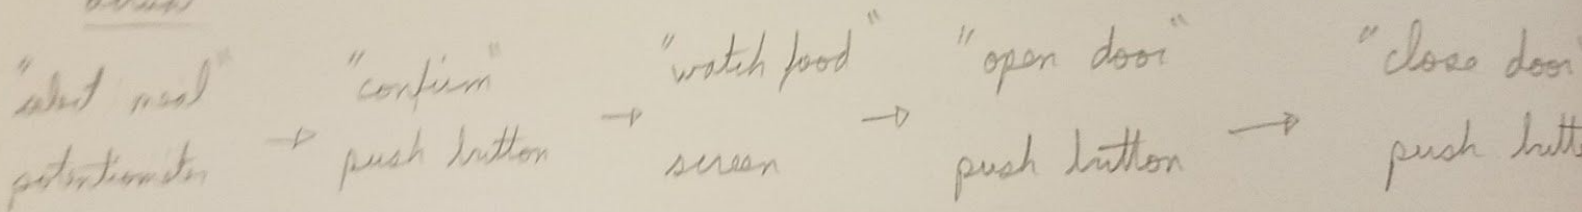 "select meal" "confirm" "watch food" "open door" "close door
potentiometer → push button → screen → push button → push butt